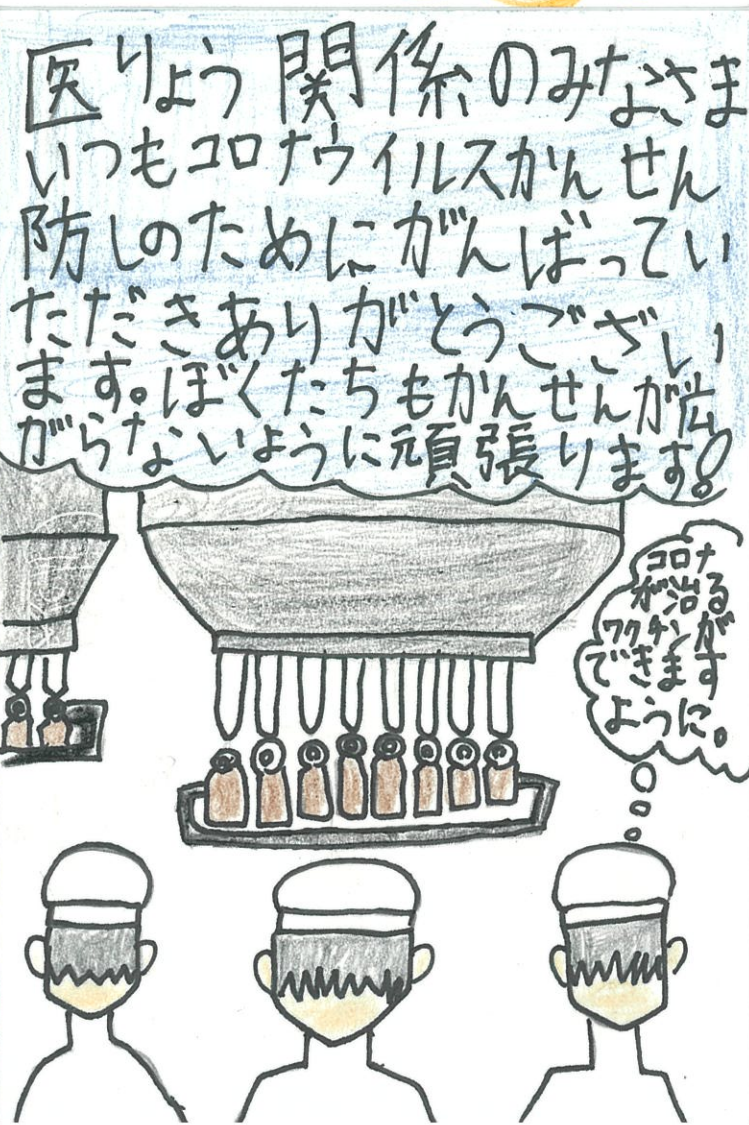 医りょう関係のみなさま
いつもコロナウイルスかんせん
防しのためにがんばってい
ただきありがとうございい
ます。ぼくたちもかんせんが広
がらないように頑張ります!
コロナ
が治る
ワクチンが
できます
ように。